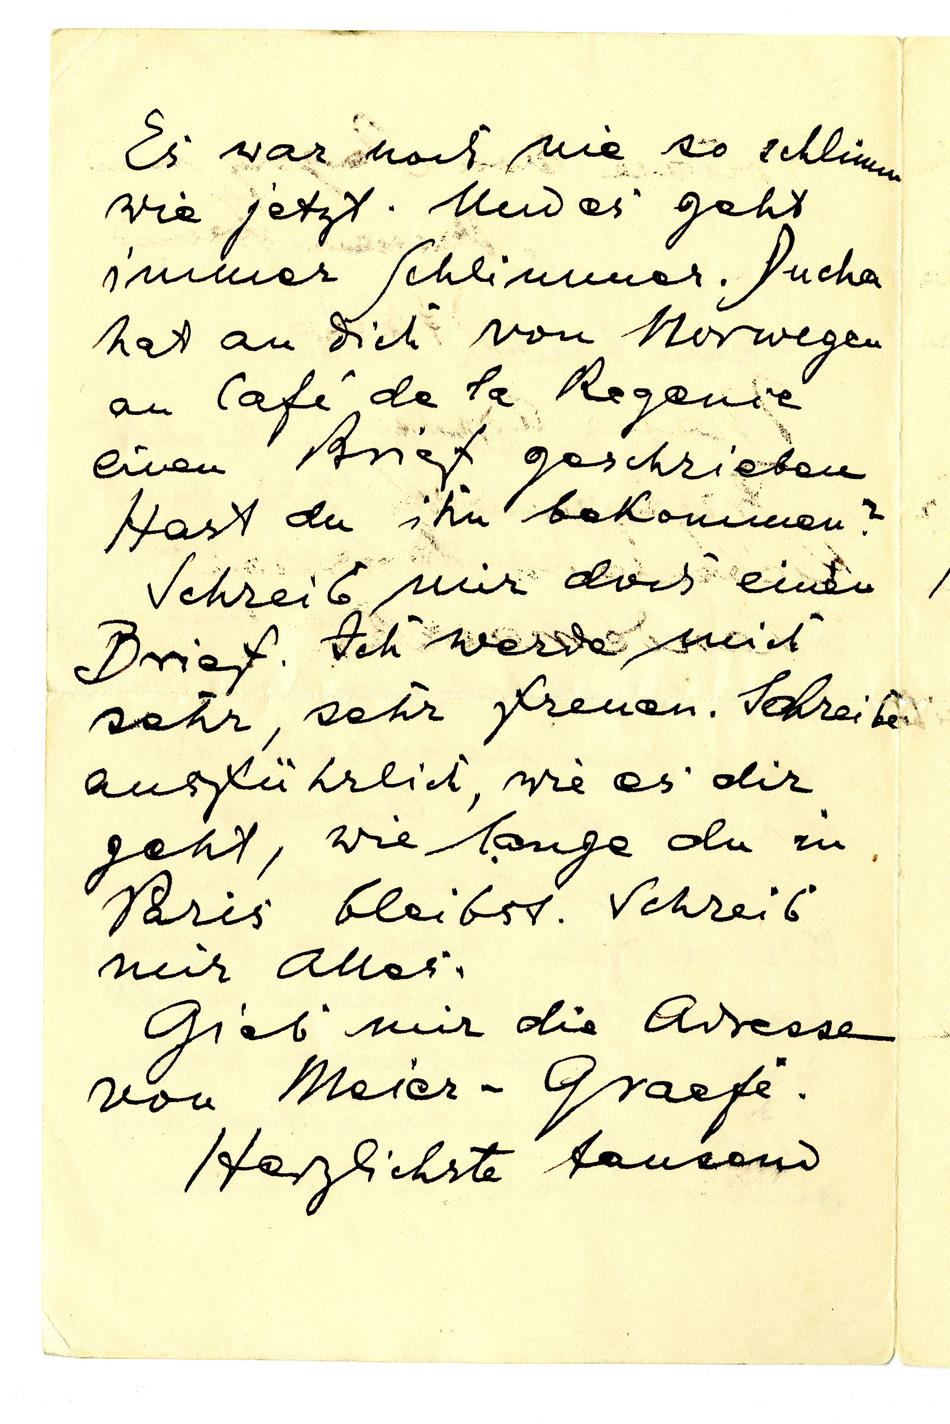 Es war noch nie so schlimm
wie jetzt. Und es geht
immer schlimmer. Ducha
hat an dich von Norwegen
an Café de la Regence
einen Brief geschrieben
Hast du ihn bekommen?
Schreib mir doch einen
Brief. Ich werde mich
sehr, sehr freuen. Schreibe
ausführlich, wie es dir
geht, wie lange du in
Paris bleibst. Schreib
mir Alles.
Gieb mir die Adresse
von Meier-Graefe.
Herzlichste tausend